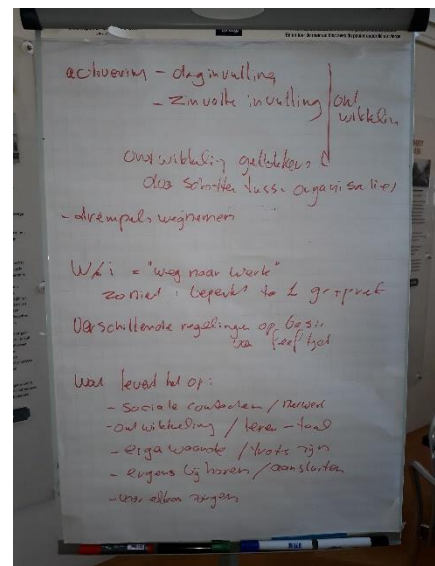 activering - daginvulling
- zinvolle invulling
ont
wikkelin
ontwikkeling
door schotten tuss. organisaties
- drempels wegnemen
W&i = "weg naar werk"
zoniet: beperkt to 1 gesprek
Verschillende regelingen op basis
van leeftijd
Wat levert het op:
- sociale contacten / netwerk
- ontwikkeling / leren - taal
- eigawaarde / trots zijn
- ergens bij horen / aansluiten
- voor elkaar zorgen